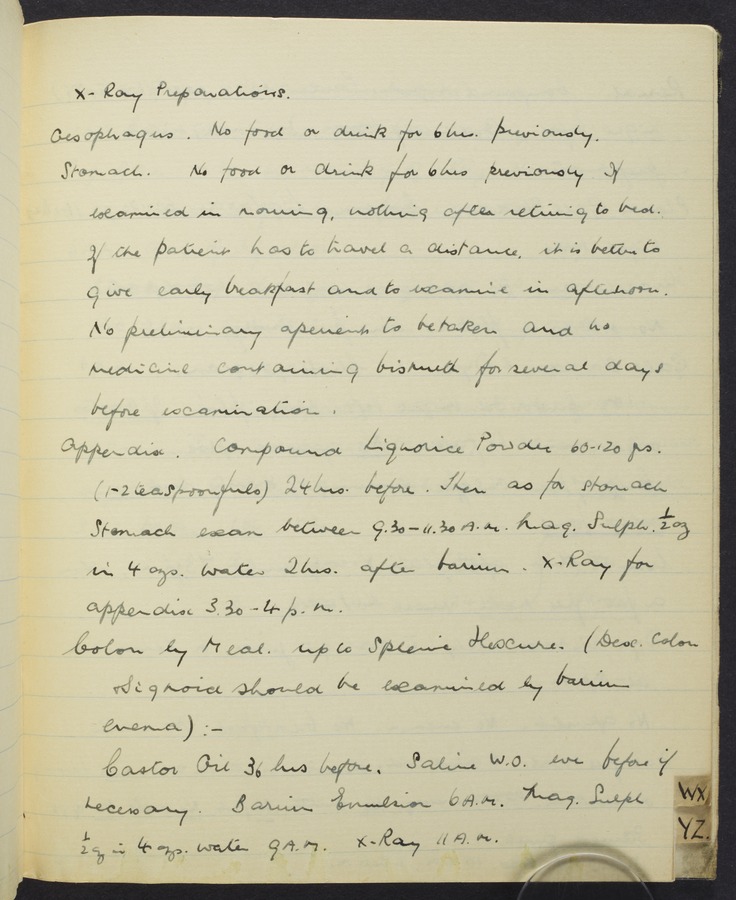 X-Ray Preparations.
Oesophagus. No food or drink for 6 hrs. previously.
Stomach. No food or drink for 6 hrs previously If
examined in morning, nothing after retiring to bed.
If the patient has to travel a distance, it is better to
give early breakfast and to examine in afternoon.
No preliminary aperient to be taken and no
medicine containing bismuth for several days
before examination.
Appendix. Compound Liquorice Powder 60-120 grs.
(1-2 teaspoonfuls) 24 hrs. before. Then as for stomach
Stomach exam between 9.30-11.30 A.M. Mag. Sulph. ½ oz
in 4 ozs. water 2 hrs. after barium. X-Ray for
appendix 3.30-4 p.m.
Colon by Meal. up to Splenic Flexure. (Desc. Colon
+ Sigmoid should be examined by barium
enema):-
Castor Oil 36 hrs before. Saline W.O. eve before if
necessary. Barium Emulsion 6 A.M. Mag. Sulph
½ oz in 4 ozs. water 9 A.M. X-Ray 11 A.M.
WX
YZ.